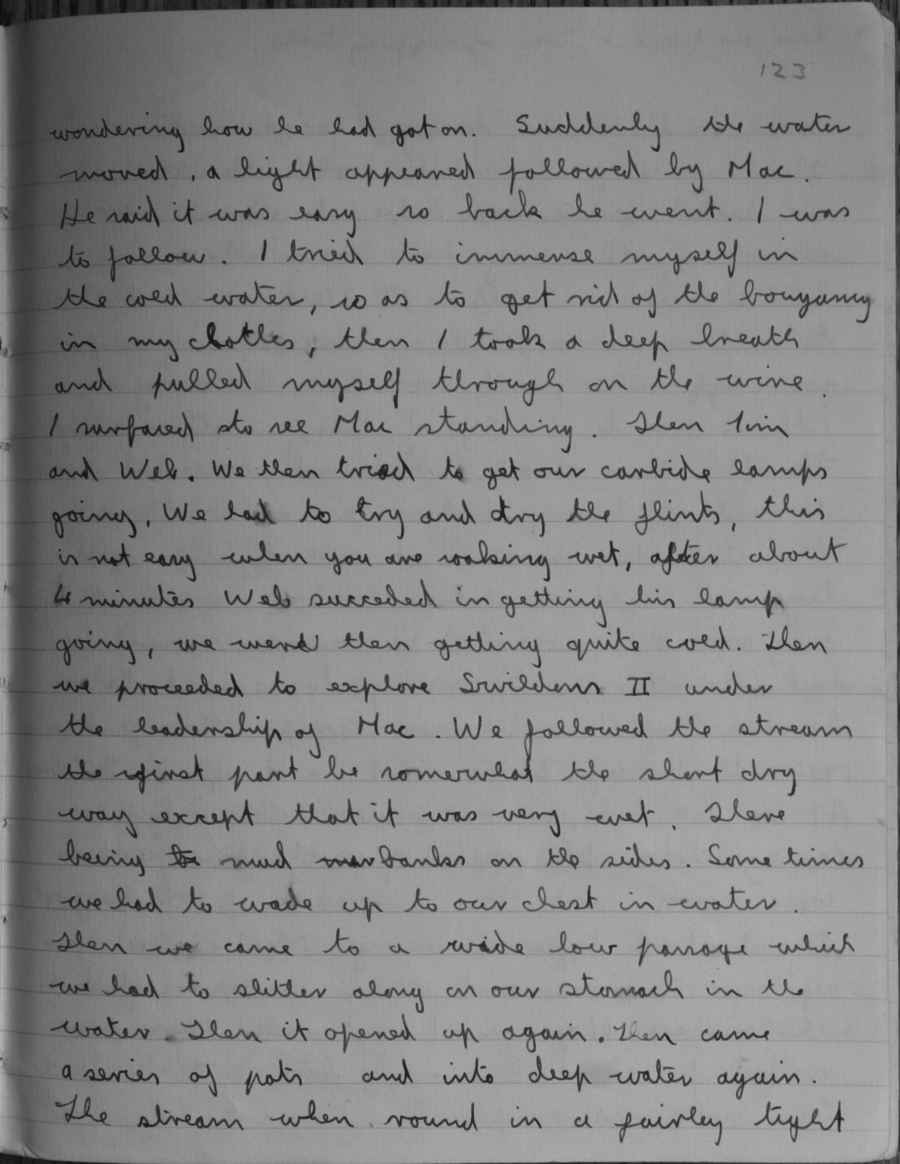 123
wondering how he had got on. Suddenly the water
moved, a light appeared followed by Mac.
He said it was easy so back he went. I was
to follow. I tried to immerse myself in
the cold water, so as to get rid of the bouyancy
in my clothes, then I took a deep breath
and pulled myself through on the wire.
I surfaced to see Mac standing. Then Jim
and Web. We then tried to get our carbide lamps
going, We had to try and dry the flints, this
is not easy when you are soaking wet, after about
4 minutes Web succeded in getting his lamp
going, we were then getting quite cold. Then
we proceeded to explore Swildons II under
the leadership of Mac. We followed the stream
the first part be somewhat the short dry
way except that it was very wet. There
being mud banks on the sides. Some times
we had to wade up to our chest in water.
Then we came to a wide low passage which
we had to slither along on our stomach in the
water. Then it opened up again. Then came
a series of pots and into deep water again.
The stream when round in a fairley tight